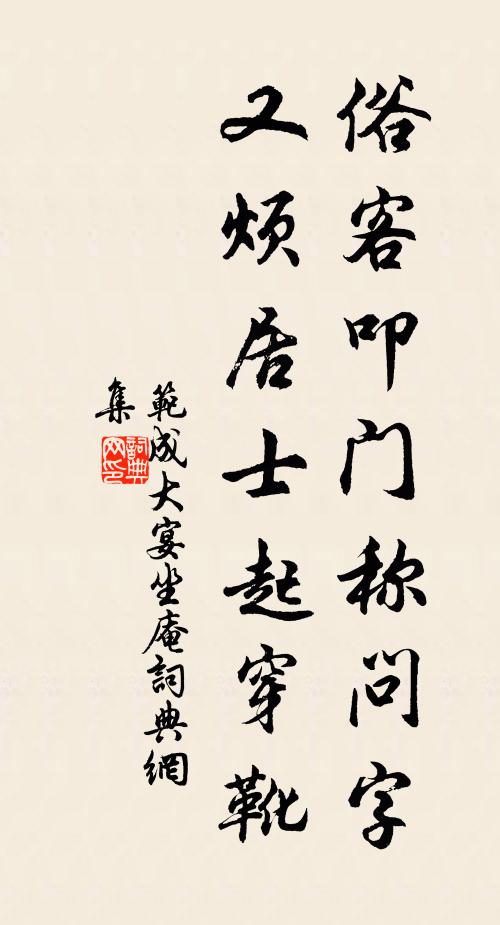 俗客叩门称问字
又烦居士起穿靴
範成大宴坐庵詞典網
集
詞典
网印